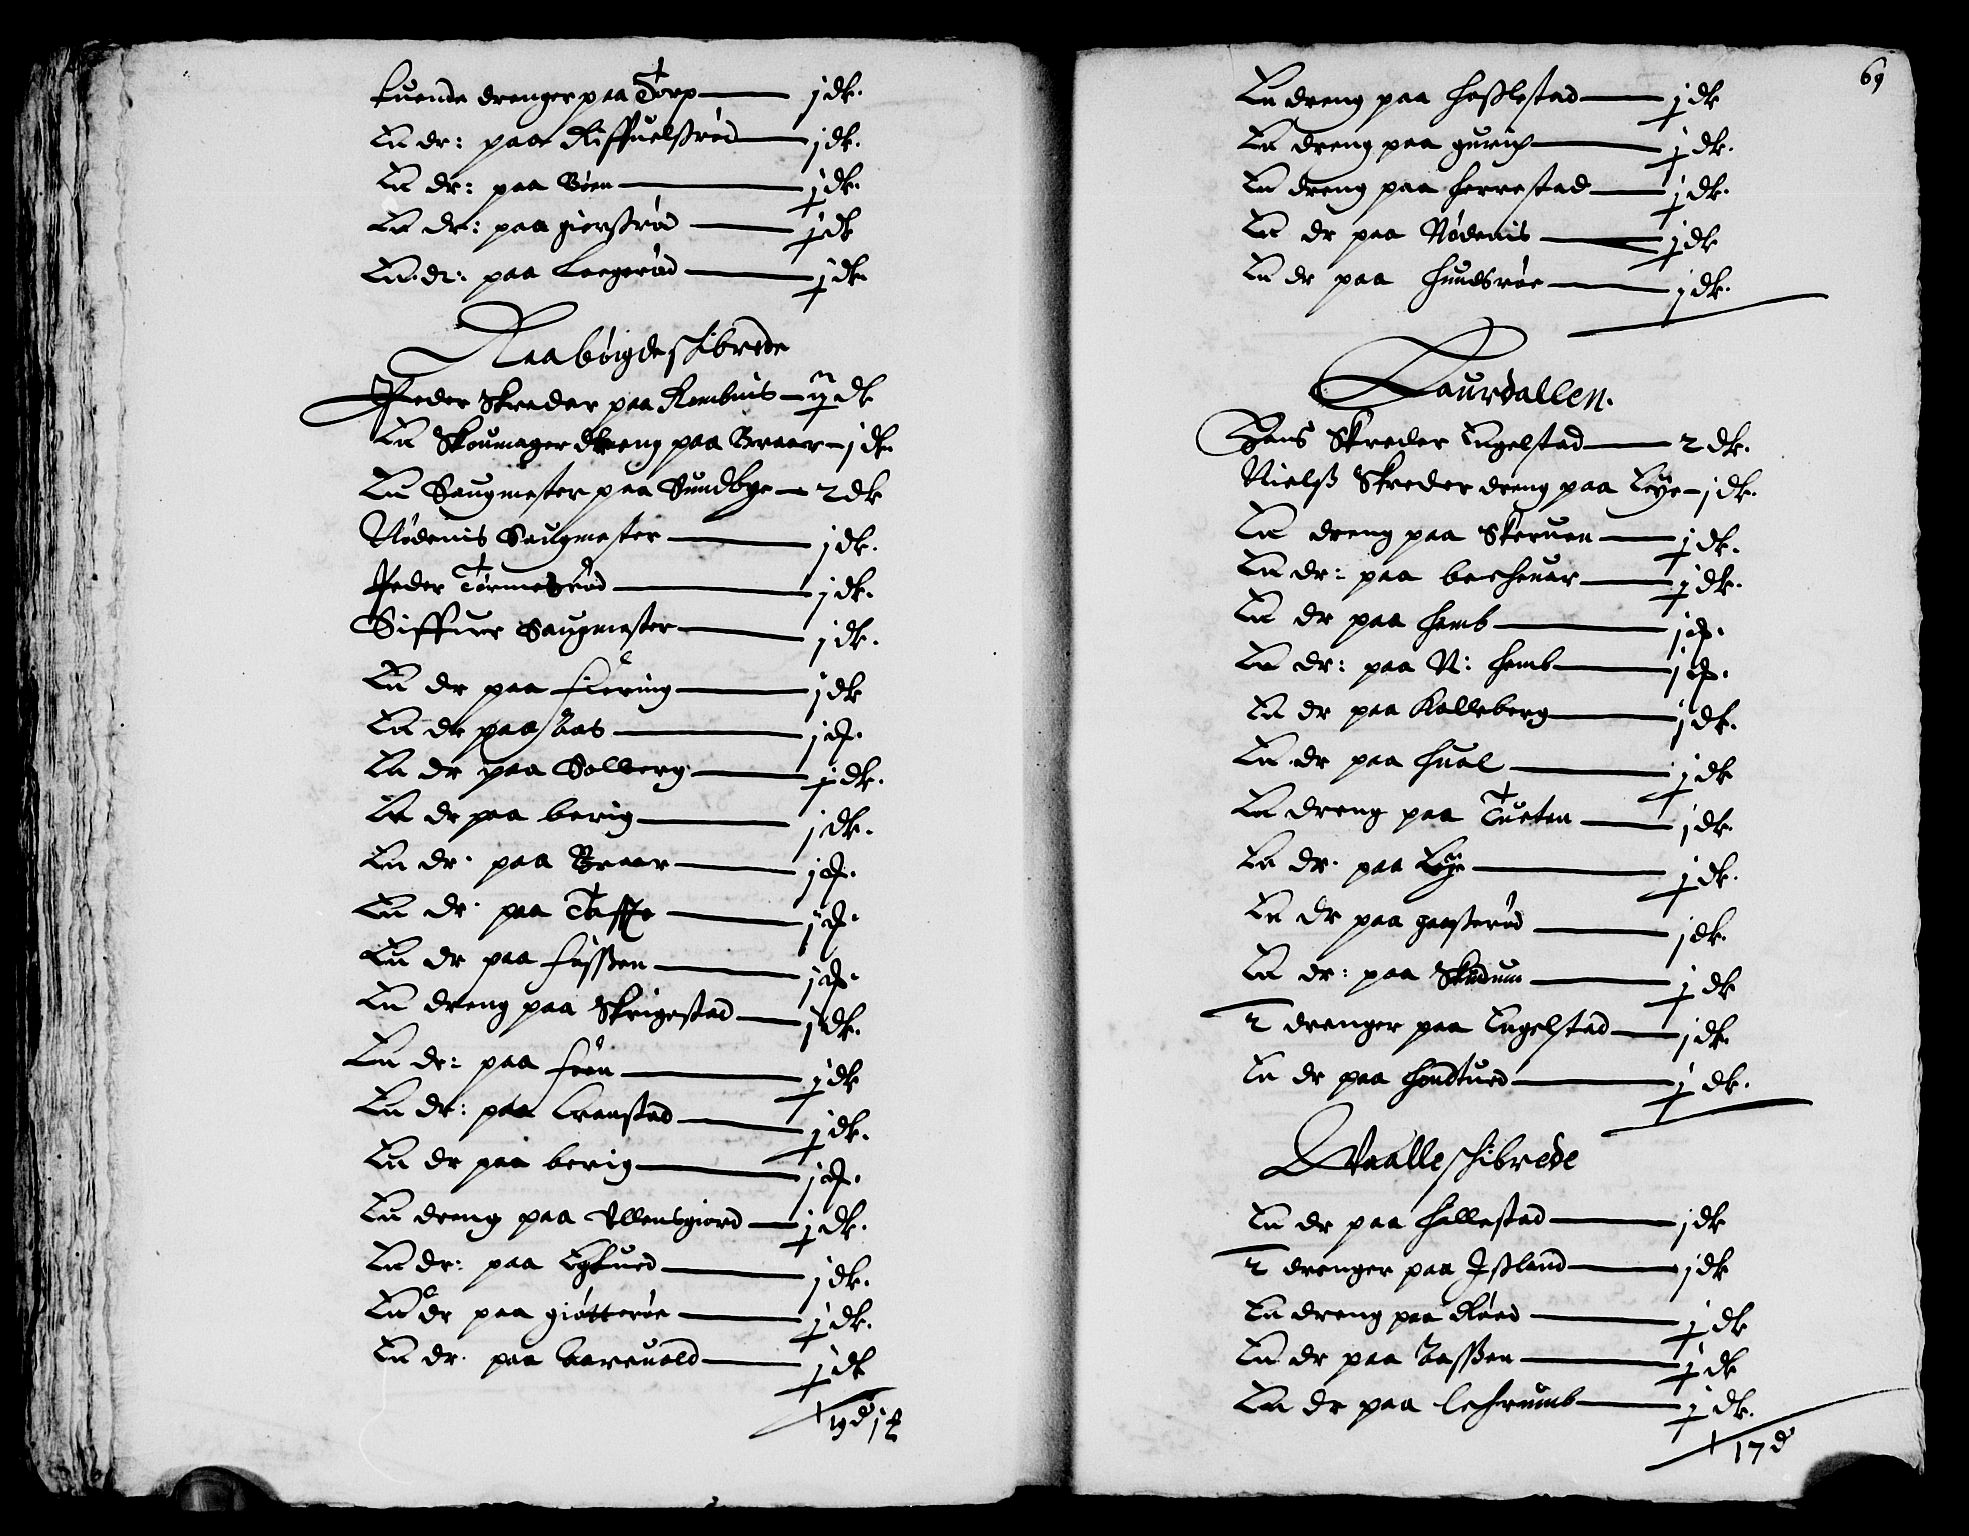 tuende drenger paa Torp — j dk.
En dr: paa Riffuelßrød — j dk.
En dr: paa Böen — j dk.
En dr: paa giersrød — j dk
En dr: paa Leegerød — j dk
Raabøigdeschibrede
Peder Skreder paa Rombnis — ij dk
En Skoumager dreng paa Braar — j dk
En Saugmester paa Sundbye — 2 dk
Nødenis Saugmester — j dk.
Peder Tormesrød — j dk.
Siffuer Saugmester — j dk.
En dr paa fiering — j dk
En dr paa Aas — j d.
En dr paa Solberg — j dk.
En dr paa berig — j dk.
En dr: paa Braar — j d.
En dr: paa — j d.
En dr paa fossen — j d.
En dreng paa Skrigestad — j dk.
En dr: paa foen — j dk
En dr: paa Franstad — j dk.
En dr paa berig — j d.
En dreng paa Ullensgiord — j dk.
En dr: paa — j dk.
En dr paa giøtterøe — j dk.
En dr: paa Aareuold — j dk
19 d j
69
En dreng paa haslestad — j dk
En dreng paa — j dk.
En dreng paa herrestad — j dk.
En dr paa Nødenis — j dk
En dr paa hundsrøe — j dk.
Laurdallen.
Hans Skreder Engelstad — 2 dk.
Nielß Skreder dreng paa Lye — j dk.
En dreng paa Skeruen — j dk.
En dr: paa becheuar — j dk.
En dr paa hemb — j d.
En dr: paa N: hemb — j d.
En dr paa Kalleberg — j dk.
En dr paa hual — j dk
En dreng paa Tueten — j dk.
En dr: paa Lye — j dk.
En dr paa gaaserød — j dk.
En dr: paa Skedum — j dk
2 drenger paa Engelstad — j dk.
En dr paa hondtued — j dk.
Waalleschibrede
En dr paa hallestad — j dk
2 drenger paa Ißland — j dk
En dreng paa Røed — j dk
En dr paa Aassen — j dk
En dr paa Lechrumb — j dk.
17 d